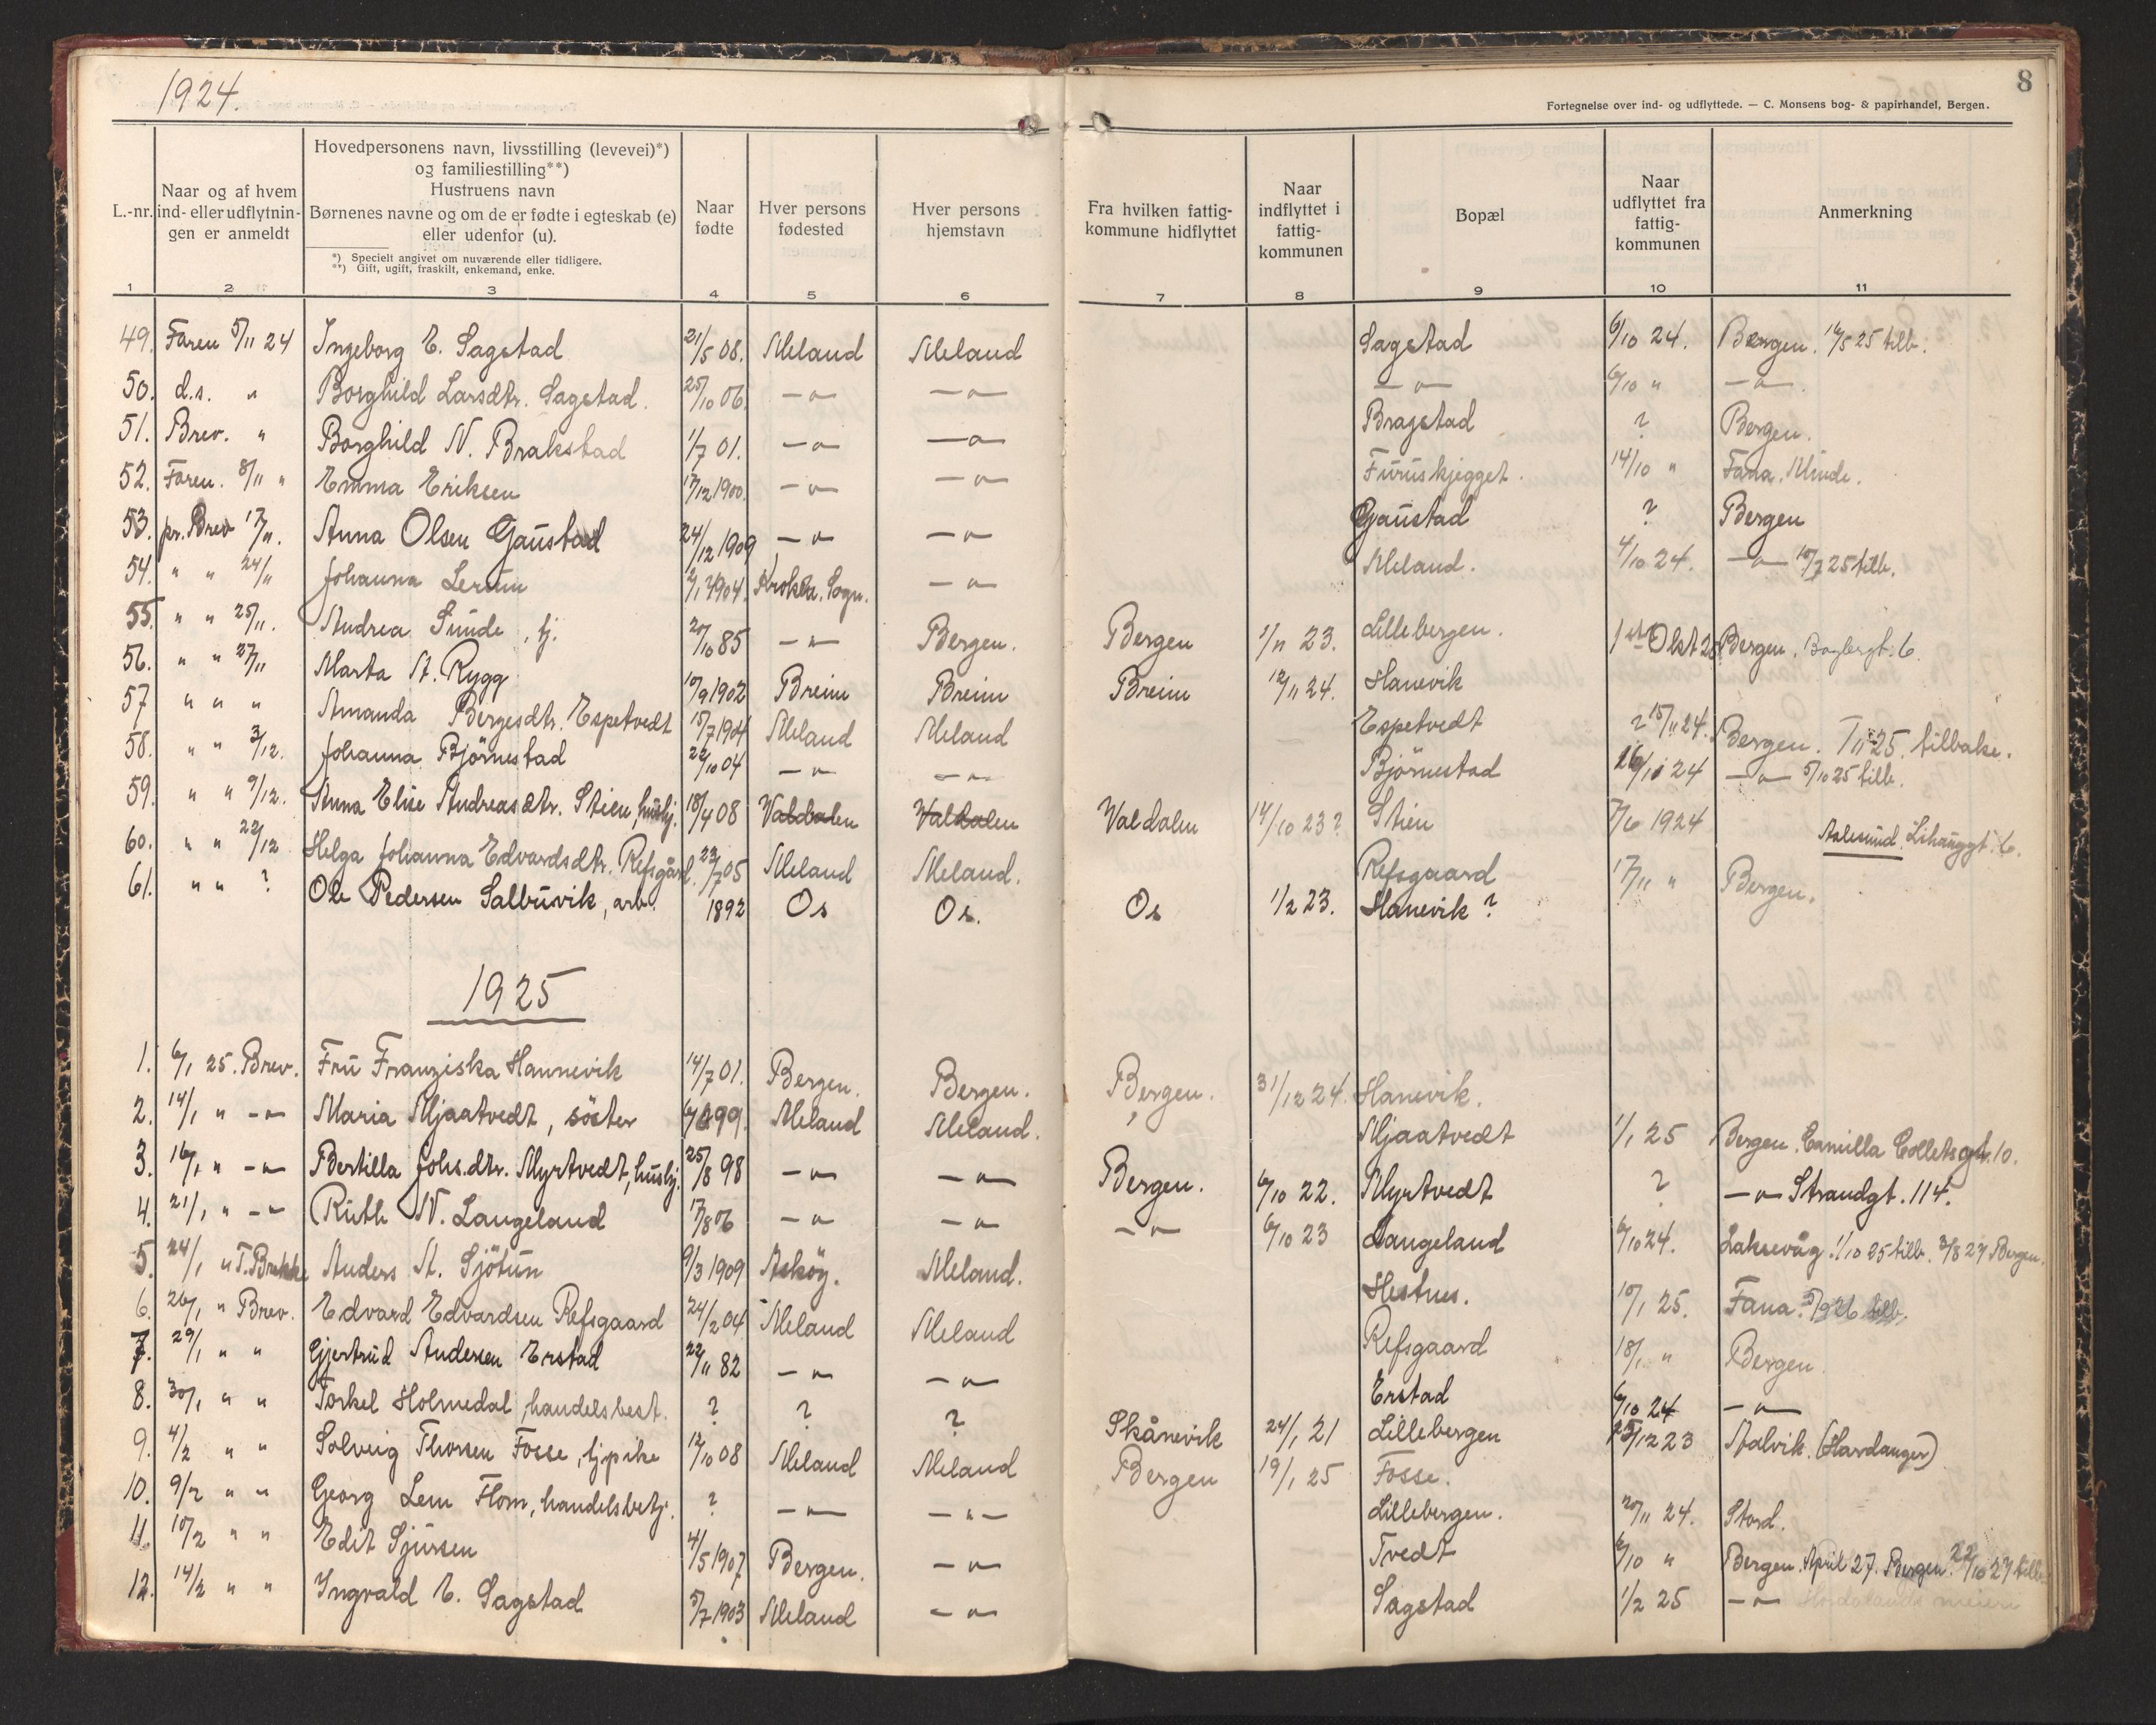 1924.
8
Fortegnelse over ind- og udflyttede. — C. Monsens bog- & papirhandel, Bergen.
L.-nr.
Naar og af hvem ind- eller udflytnin-gen er anmeldt
Hovedpersonens navn, livsstilling (levevei)*) og familiestilling**)
Hustruens navn
Børnenes navne og om de er fødte i egteskab (e) eller udenfor (u).
*) Specielt angivet om nuværende eller tidligere.
**) Gift, ugift, fraskilt, enkemand, enke.
Naar fødte
Hver persons fødested
Hver persons hjemstavn
Fra hvilken fattig-kommune hidflyttet
Naar indflyttet i fattig-kommunen
Bopæl
Naar udflyttet fra fattig-kommunen
Anmerkning
1 2 3 4 5 6 7 8 9 10 11
49. Faren 5/11 24 Ingeborg E. Sagstad 21/5 08. Meland Meland Sagstad 6/10 24. Bergen. 14/5 25 tilb.
50. d.s. " Borghild Larsdtr. Sagstad. 25/10 06. —"— —"— —"— 6/10 " —"—.
51. Brev. " Borghild N. Brakstad 1/7 01. —"— —"— Bragstad ? Bergen.
52. Faren. 8/11 " Emma Eriksen 17/12 1900. —"— —"— Furuskjegget. 14/10 " Fana. Minde.
53. pr. Brev 17/11. Anna Olsen Gaustad 24/12 1909 —"— —"— Gaustad ? Bergen
54. " " 24/11 Johanna Lerum 1904. Sogn. —"— Meland. 4/10 24. —"— 25 tilb.
55. " " 25/11. Andrea Sunde, tj. 20/10 85 —"— Bergen. Bergen 1/11 23. Lillebergen. Bergen. 6.
56. " " 27/11 Marta A. Rygg 10/9 1902 Breim Breim Breim 12/11 24. Hanevik
57 " " " Amanda Bergesdtr. Espetvedt 15/7 1904 Meland Meland Espetvedt ? 15/11 24. Bergen. 25. tilbake.
58. " " 3/12. Johanna Björnestad 22/10 04 —"— —"— Björnestad 24 —"— 5/10 25 tilb.
59. " " 9/12. Anna Elise Andreasdtr. Stien, hushj. 18/4 08 Valdalen Valdalen Valdalen 14/10 23? Stien 7/6 1924 Aalesund. 6.
60. " " 22/12 Helga Johanna Edvardsdtr. Refsgård. 23/7 05 Meland Meland. Refsgaard 17/11 " Bergen.
61. " " ? Ole Pedersen Salbuvik, arb. 1892 Os Os. Os 1/2 23. Hanevik?
1925
1. 6/1 25. Brev. Fru Franziska Hannevik 14/7 01. Bergen. Bergen. Bergen. 31/12 24. Hanevik.
2. 14/1 " —"— Maria Mjaatvedt, söster 99. Meland Meland. Mjaatvedt 1/1 25 Bergen. Camilla Colletsgt. 10.
3. 16/1 " —"— Bertilla Johs.dtr. Myrtvedt, hushj. 25/8 98 —"— —"— Bergen. 6/10 22. Myrtvedt ? —"— Strandgt. 114.
4. 21/1 " —"— Ruth N. Langeland 17/8 06 —"— —"— —"— 6/10 23 Langeland 6/10 24. Laksevåg. 1/10 25 tilb. 3/8 27 Bergen.
5. 24/1 " T. Brakke Anders A. Sjötun 9/3 1909 Askøy. Meland. Hestnes. 10/1 25. Fana. 26 tilb.
6. 26/1 " Brev. Edvard Edvardsen Refsgaard 24/2 04. Meland Meland Refsgaard 18/1 " Bergen.
7. 29/1 " " Gjertrud Andersen Erstad 22/11 82 —"— —"— Erstad 6/10 24 —"—
8. 30/1 " " Torkel Holmedal, handelsbest. ? ? ? Skånevik 24/1 21 Lillebergen 12 23 Aalvik. (Hardanger)
9. 4/2 " " Solveig Thorsen Fosse, tjpike 12/10 08 Meland Meland Bergen 19/1 25 Fosse.
10. 9/2 " " Georg Lem Flom, handelsbetj. ? —"— —"— Lillebergen. 20/11 24. Stord.
11. 10/2 " " Edit Sjursen 4/5 1907 Bergen. —"— Tvedt 6/10 " Bergen. April 27. Bergen. 22/10 27 tilb.
12. 14/2 " " Ingvald E. Sagstad 5/7 1903 Meland —"— Sagstad 1/2 25 —"— Hordalands meieri